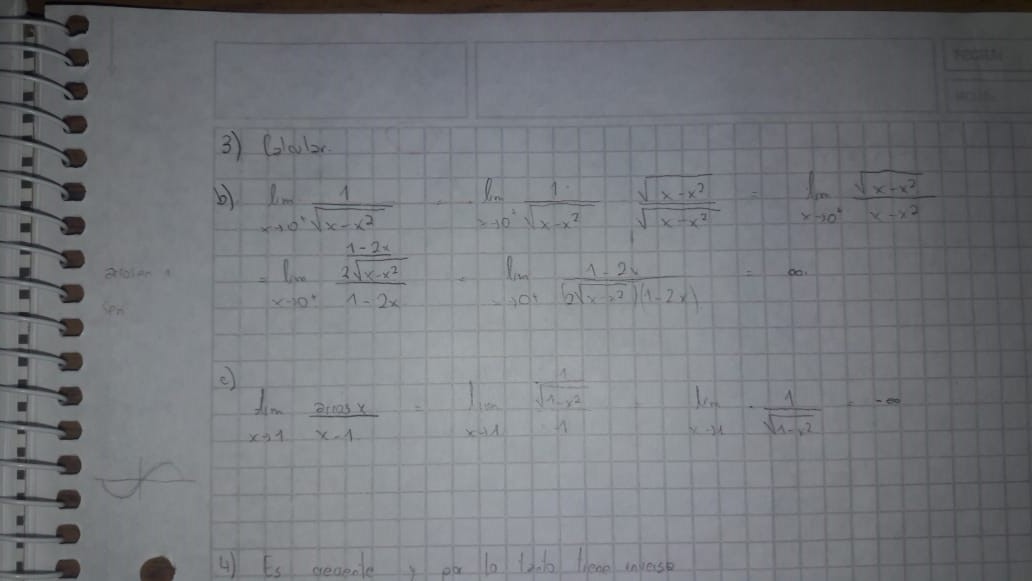 3) Calcular.
b) lim x→0⁺ 1/√(x-x²) = lim x→0⁺ 1/√(x-x²) √(x-x²)/√(x-x²) = lim x→0⁺ √(x-x²)/(x-x²)
= lim x→0⁺ ((1-2x)/(2√(x-x²)))/(1-2x) = lim x→0⁺ (1-2x)/((2√(x-x²))(1-2x)) = ∞.
c)
lim x→1 arcos x/(x-1) = lim x→1 (1/√(1-x²))/1 = lim x→1 - 1/√(1-x²) = -∞
4) Es creciente y por lo tanto tiene inversa